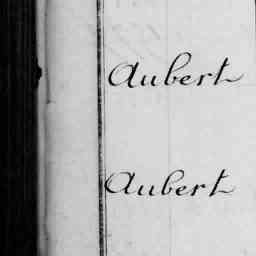 Aubert
Aubert